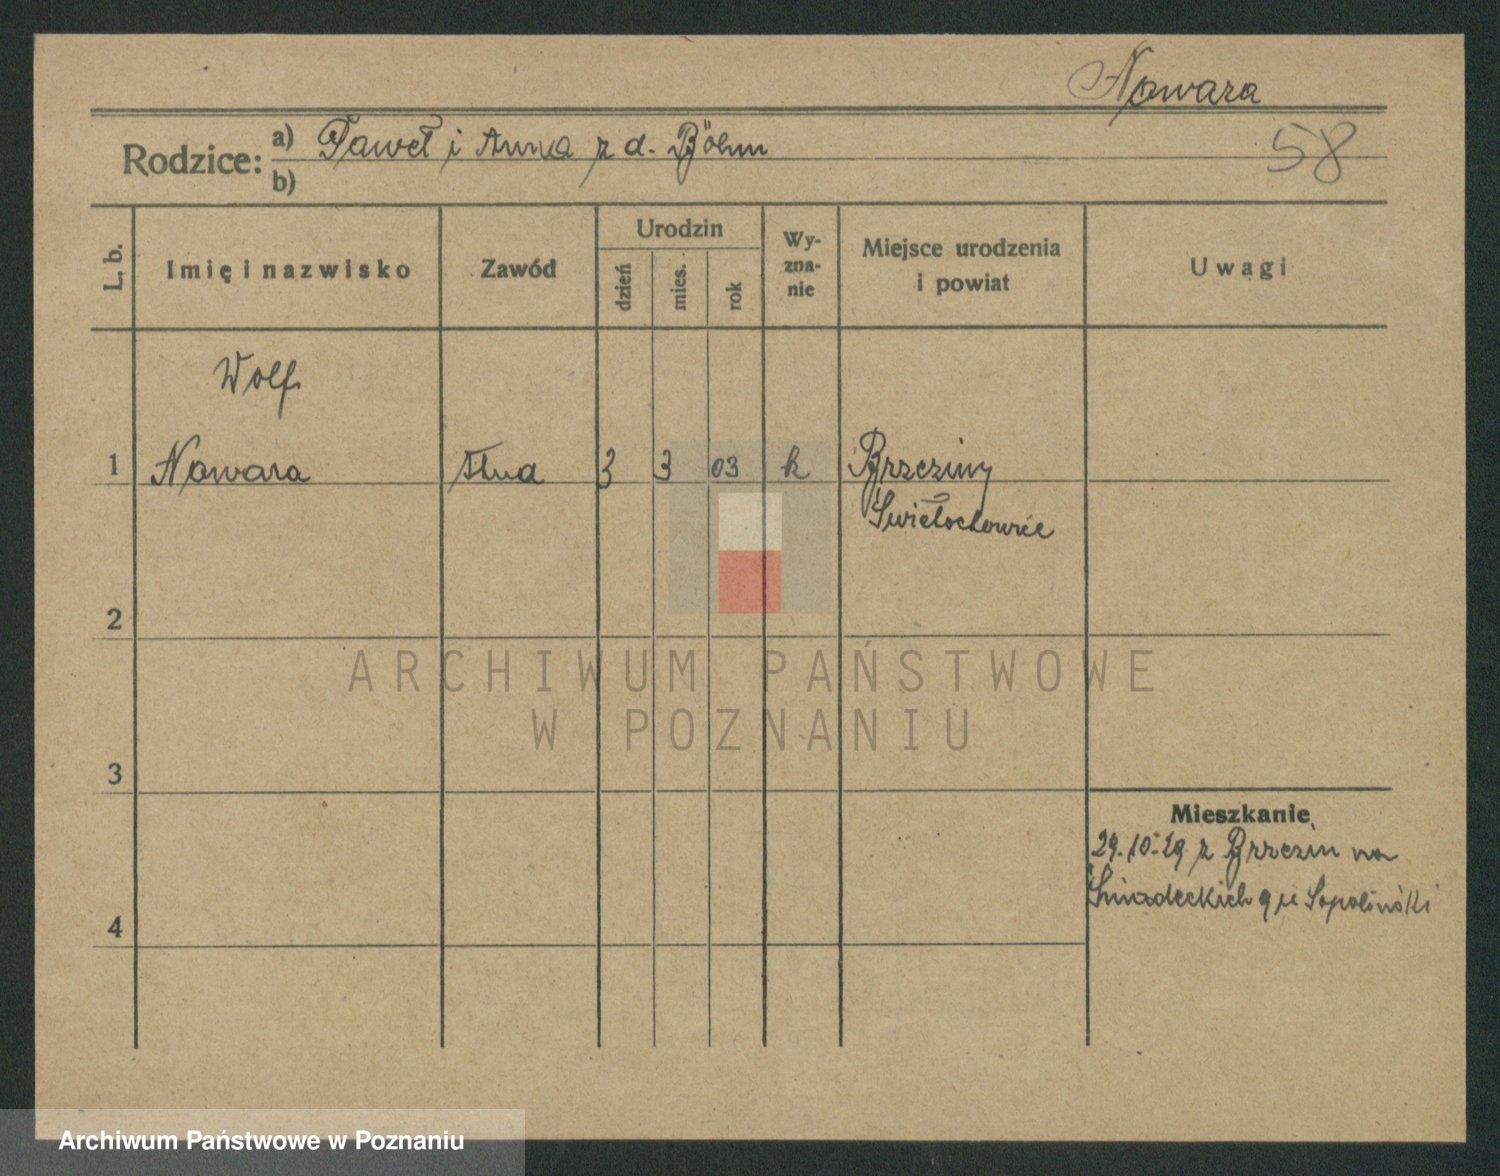 Nawara
58
Rodzice: a) Paweł i Anna z d. Böhm
b)
L. b.
Imię i nazwisko
Zawód
Urodzin
dzień
mies.
rok
Wy-
zna-
nie
Miejsce urodzenia
i powiat
Uwagi
Wolf
1 Nawara 3 3 03 k Brzeziny
Świętochowice
2
3
4
Mieszkanie
29.10.29 z Brzezin na
Śniadeckich 9
ARCHIWUM PAŃSTWOWE
W POZNANIU
Archiwum Państwowe w Poznaniu